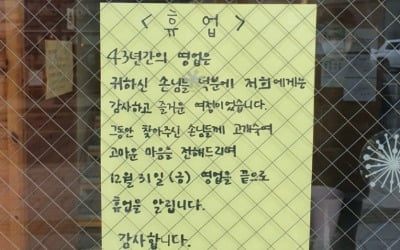 < 휴 업 >
43년간의 영업은
귀하신 손님들 덕분에 저희에게는
감사하고 즐거운 여정이었습니다.
그동안 찾아주신 손님들께 고개숙여
고마운 마음을 전해드리며
12월 31일(금) 영업을 끝으로
휴업을 알립니다.
감사합니다.